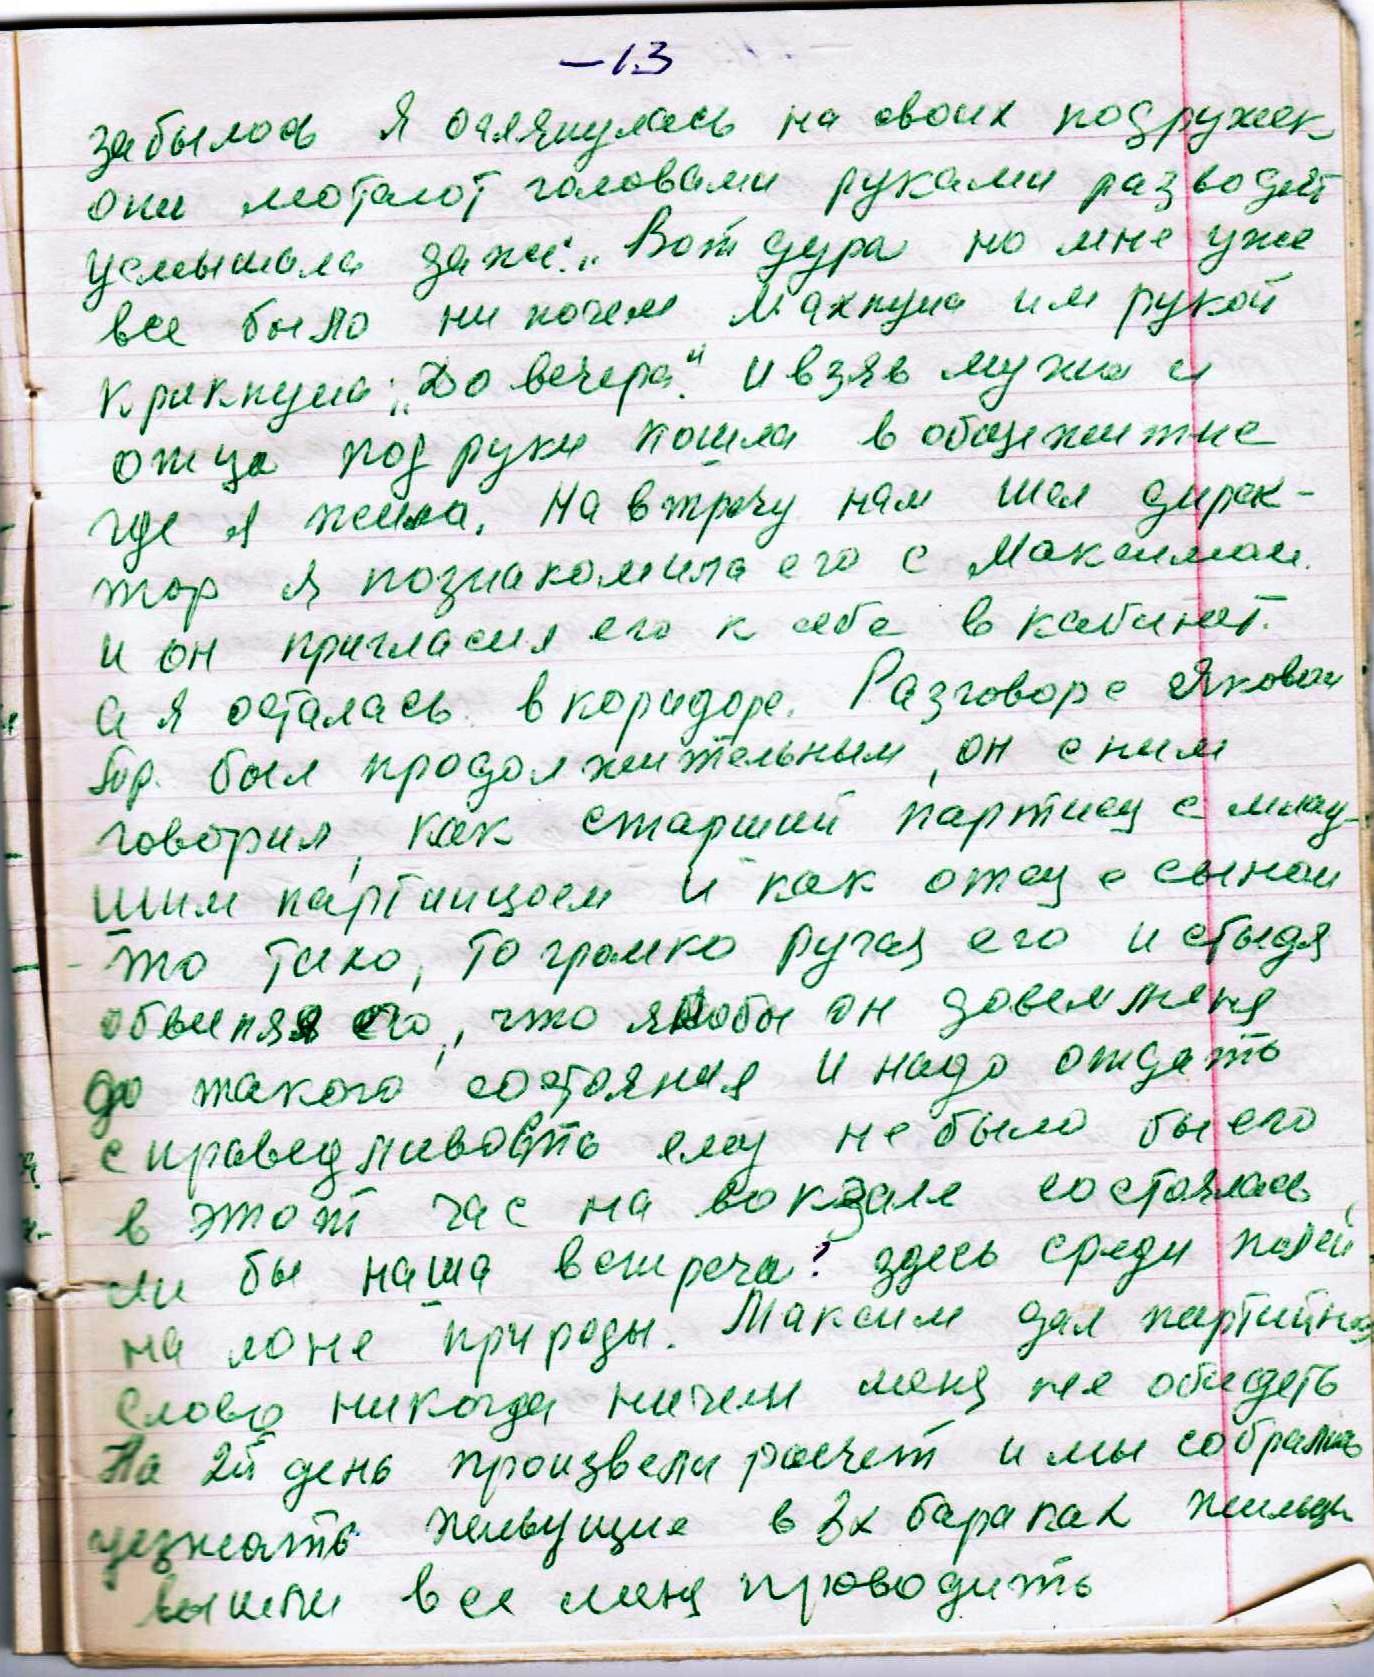 -13
забылось Я оглянулась на своих подружек
они мотают головами руками разводят
услышала даже: „Вот дура но мне уже
все было ни почем Махнула им рукой
крикнула; „До вечера" и взяв мужа и
отца под руки пошла в общежитие
где я жила. На втречу нам шел дирек-
тор я познакомила его с Максимом.
и он пригласил его к себе в кабинет.
а я осталась в коридоре. Разговор с Яковом
был продолжительным, он с ним
говорил, как старший партиец с млад-
шим партийцем и как отец с сыном
то тихо, то громко ругая его и стыдя
обвиняя его, что якобы он довел меня
до такого состояния и надо отдать
справедливость ему не было бы его
в этот час на вокзале состоялась
ли бы наша встреча? здесь среди полей
на лоне природы. Максим дал партийное
слово никогда ничем меня не обидеть
На 2й день произвели расчет и мы собрались
уезжать живущие в 3х бараках жильцы
вышли все меня проводить